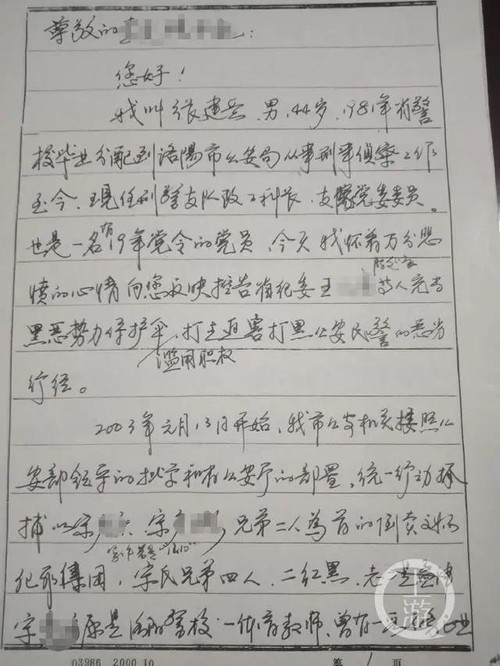 尊敬的
您好！
我叫张建芸 男，44岁，1981年省警
校毕业分配到洛阳市公安局从事刑事侦察工作
至今，现任刑警支队政工科长，支队党委委员。
也是一名有19年党令的党员，今天我怀着万分悲
愤的心情向您反映控告省纪委王 等人充当
黑恶势力保护伞，滥用职权打击迫害打黑公安民警的恶劣
行径。
2003年元月13日开始，我市公安机关按照公
安部领导的批字和省公安厅的部署，统一行动抓
捕以宋 、宋 兄弟二人为首的倒卖文物
犯罪集团，宋氏兄弟四人，二红黑，老
宋 原是 学校一体育教师，曾有一
03986 2000.10 第 1 页
上游